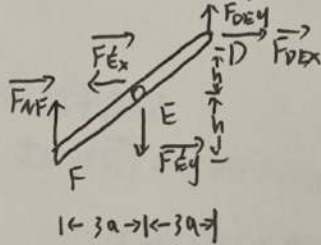 F_DEy
F_Ex D F_DEx
F_NF h
E h
F F_Ey
|← 3a →|← 3a →|